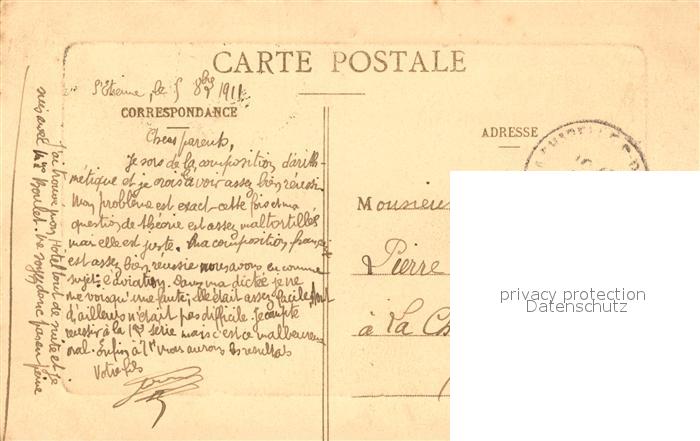 CARTE POSTALE
St Etienne, le 5 8bre 1911
CORRESPONDANCE
ADRESSE
Chers parents,
Je sors de la composition d'arith-
métique et je crois avoir assez bien réussi.
Mon problème est exact cette fois ma
question de théorie est assez maltortillés
mais elle est juste. Ma composition française
est assez bien réussie nous avons eu comme
sujet: l'aviation. Dans ma dictée je ne
me vois qu'une faute; elle était assez facile
d'ailleurs n'était pas difficile. Je compte
réussir à la 1ère série mais c'est ce malheureux
oral. Enfin à 7h nous aurons les résultats
Votre fils
J'ai trouvé mon Hôtel tout de suite et je
suis avec Mr Boulet. Ne soyez donc pas en peine
Monsieur
Pierre
à La Ch
privacy protection
Datenschutz